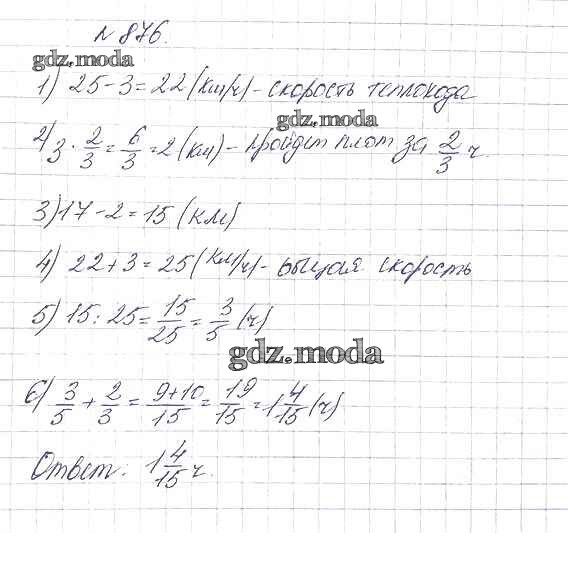 № 876.
gdz.moda
1) 25 - 3 = 22 (км/ч) - скорость теплохода
gdz.moda
2) 3 · 2/3 = 6/3 = 2 (км) - пройдет плот за 2/3 ч.
3) 17 - 2 = 15 (км)
4) 22 + 3 = 25 (км/ч) - общая скорость
5) 15 : 25 = 15/25 = 3/5 (ч)
gdz.moda
6) 3/5 + 2/3 = 9+10/15 = 19/15 = 1 4/15 (ч)
Ответ: 1 4/15 ч.